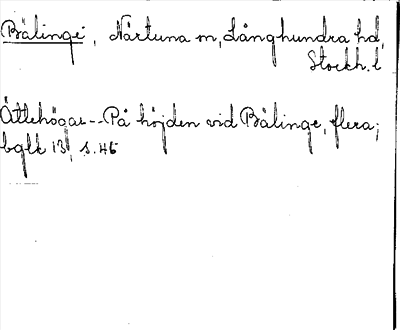 Bälinge, Närtuna sn, Långhundra hd,
Stockh. l
Ättehögar -- På höjden vid Bälinge, flera;
bglt 13, s. 46